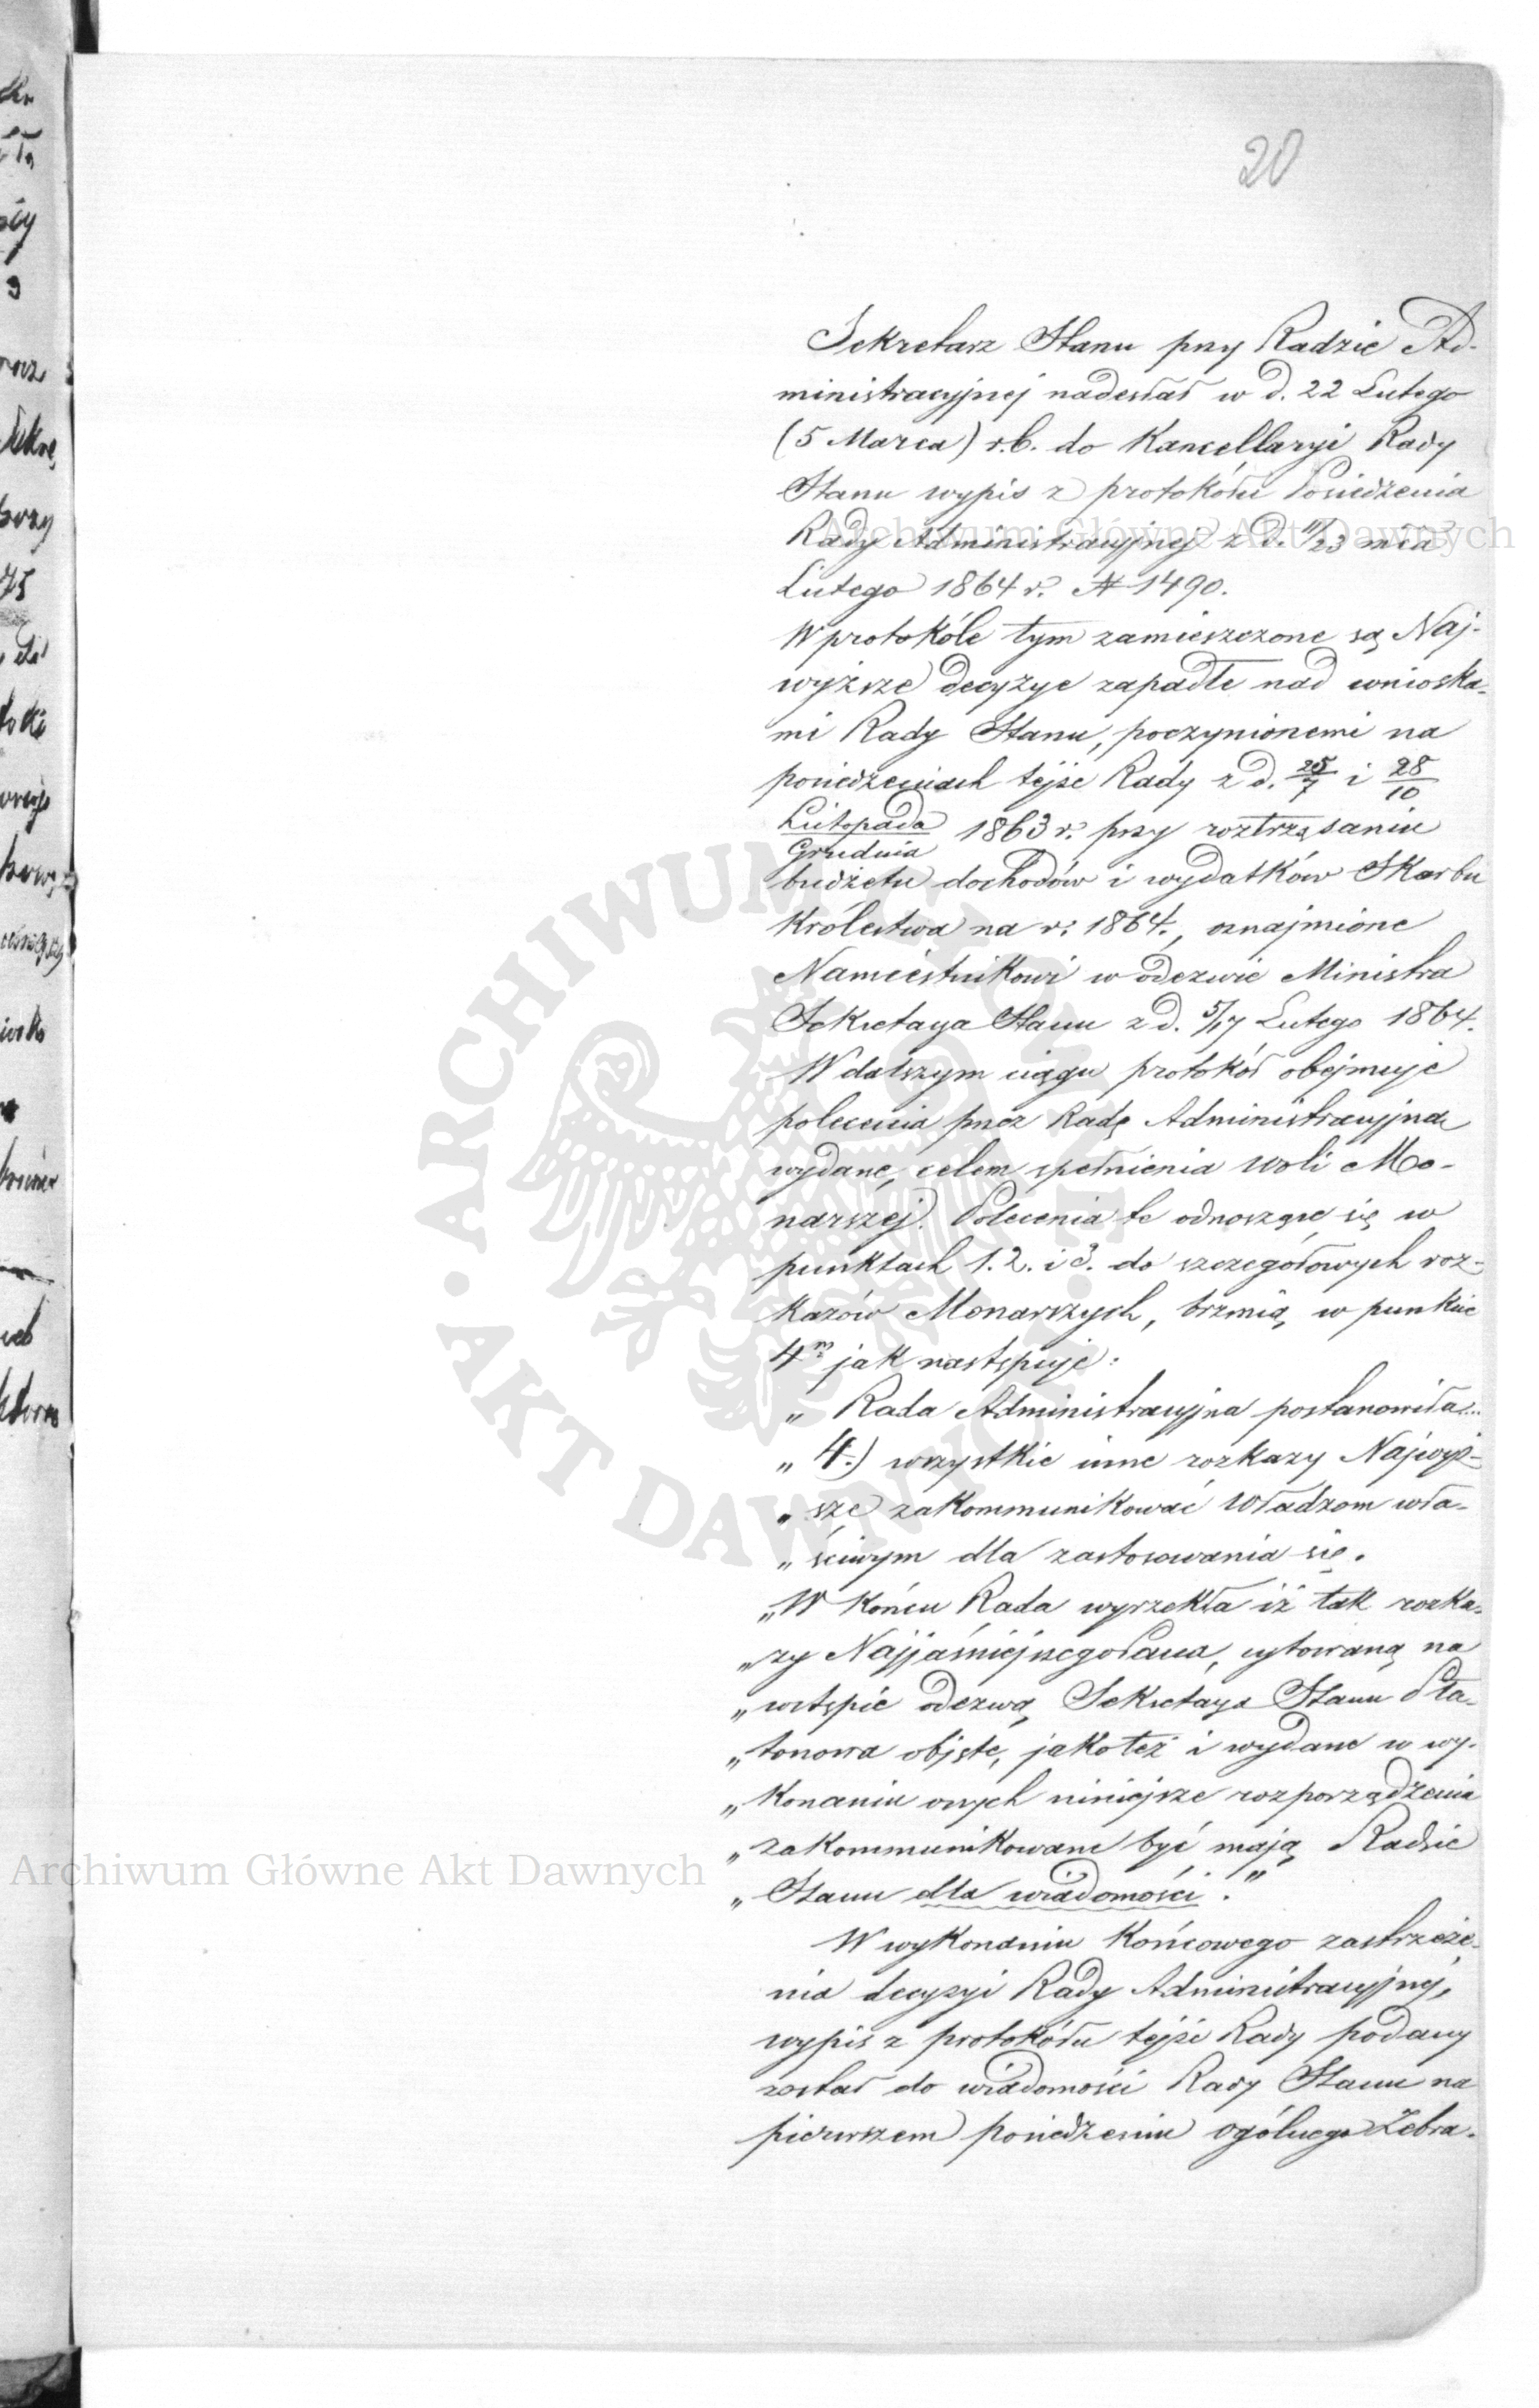 20
Sekretarz Stanu przy Radzie Ad-
ministracyjnej nadesłał w d. 22 Lutego
(5 Marca) r.b. do Kancellaryi Rady
Stanu wypis z protokółu Posiedzenia
Rady Administracyjnej z d. 11/23 mca
Lutego 1864 r. N 1490.
W protokóle tym zamieszczone są Naj-
wyższe decyzye zapadłe nad wnioska-
mi Rady Stanu, poczynionemi na
posiedzeniach tejże Rady z d. 25/7 i 28/10
Listopada/Grudnia 1863 r. przy roztrząsaniu
budżetu dochodów i wydatków Skarbu
Królestwa na r. 1864., oznajmione
Namiestnikowi w odezwie Ministra
Sekretarza Stanu z d. 5/17 Lutego 1864.
W dalszym ciągu protokół obejmuje
polecenia przez Radę Administracyjną
wydane, celem spełnienia woli Mo-
narszej. Polecenia te odnosząc się w
punktach 1. 2. i 3. do szczegółowych roz-
kazów Monarszych, brzmią w punkcie
4m jak następuje:
„ Rada Administracyjna postanowiła...
„ 4.) wszystkie inne rozkazy Najwyż-
„ sze zakommunikować Władzom wła-
„ ściwym dla zastosowania się.
„ W końcu Rada wyrzekła iż tak rozka-
„ zy Najjaśniejszego Pana, cytowaną na
„ wstępie odezwą Sekretarza Stanu Pła-
„ tonowa objęte, jako też i wydane w wy-
„ konaniu onych niniejsze rozporządzenia
„ zakommunikowane być mają Radzie
„ Stanu dla wiadomości."
W wykonaniu końcowego zastrzeże-
nia decyzyi Rady Administracyjnej,
wypis z protokółu tejże Rady podany
został do wiadomości Rady Stanu na
pierwszem posiedzeniu ogólnego Zebra-
Archiwum Główne Akt Dawnych
Archiwum Główne Akt Dawnych
ARCHIWUM GŁÓWNE
AKT DAWNYCH